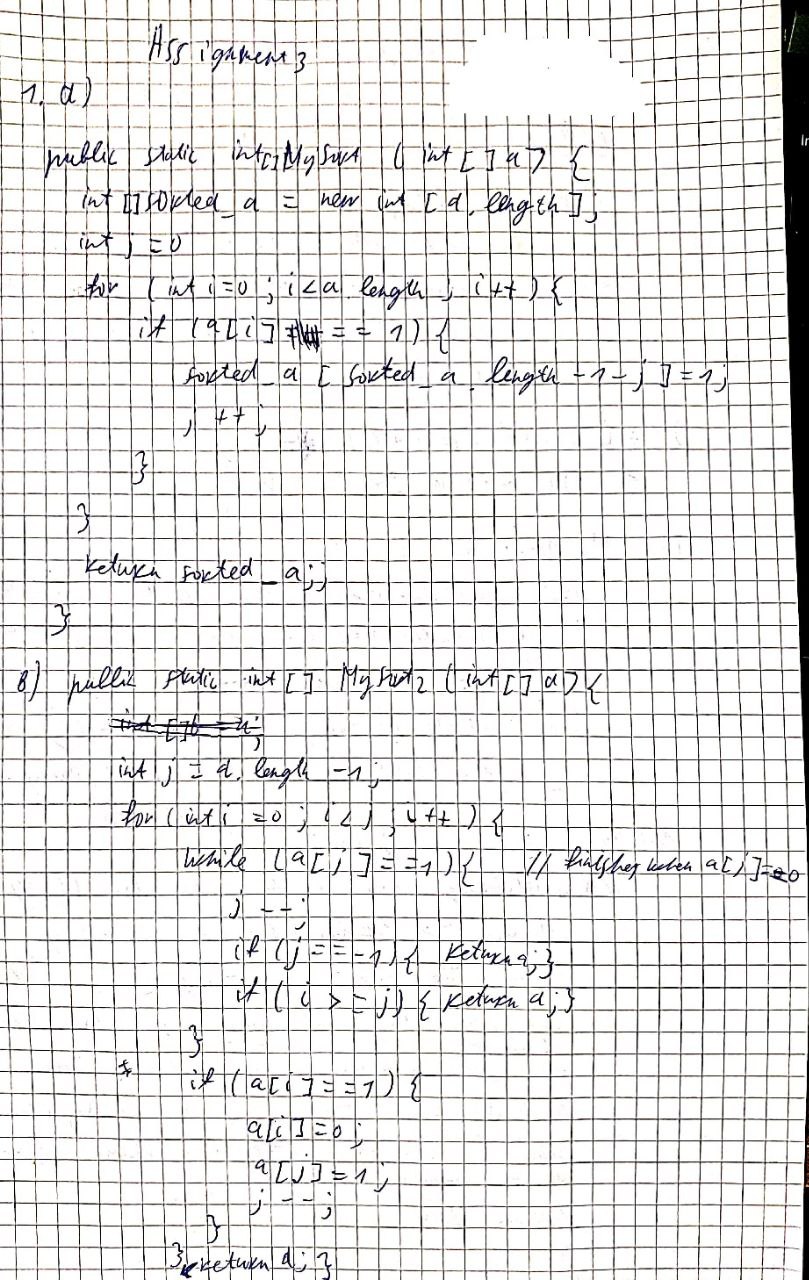 Assignment 3
1. a)
public static int[] MySort (int [] a) {
int [] sorted_a = new int [a.length];
int j = 0
for (int i=0 ; i<a.length ; i++) {
if (a[i] == 1) {
sorted_a [sorted_a.length -1-j] = 1;
j++;
}
}
return sorted_a;;
}
B) public static int [] MySort2 (int [] a) {
int j = a.length -1;
for (int i =0 ; i<j ; i++) {
while (a[j] == 1) { // finishes when a[j]=0
j--;
if (j == -1) { return a;}
if (i >= j) { return a;}
}
* if (a[i] == 1) {
a[i] = 0;
a[j] = 1;
j--;
}
} return a; }